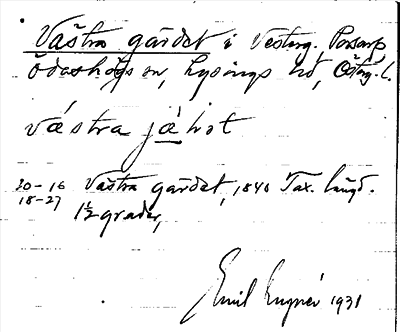 Västra gärdet i Vesterg. Porsarp
Ödeshögs sn, Lysings hd, Östg. l.
västra jä̱ɩ̇ot
20-16 Västra gärdet, 1840 Tax. längd.
18-27
1½ grader,
Emil 1931